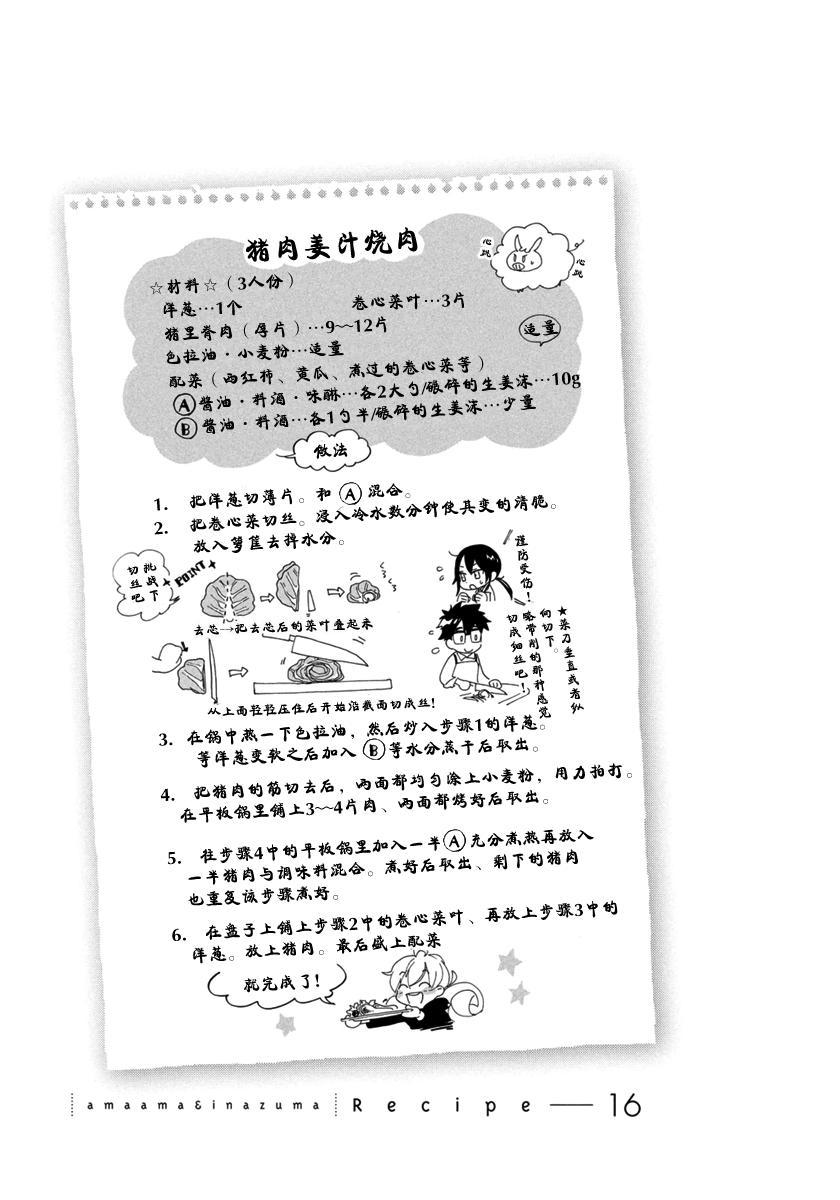 猪肉姜汁烧肉
心跳
心跳
☆材料☆（3人份）
洋葱…1个 卷心菜叶…3片
猪里脊肉（厚片）…9~12片
色拉油·小麦粉…适量
适量
配菜（西红柿、黄瓜、煮过的卷心菜等）
Ⓐ酱油·料酒·味醂…各2大勺/碾碎的生姜沫…10g
Ⓑ酱油·料酒…各1勺半/碾碎的生姜沫…少量
做法
1. 把洋葱切薄片。和Ⓐ混合。
2. 把卷心菜切丝。浸入冷水数分钟使其变的清脆。
放入箩筐去掉水分。
挑战下
切丝吧
POINT
去芯→把去芯后的菜叶叠起来
从上面轻轻压住后开始沿截面切成丝！
谨防受伤！
★菜刀垂直或者纵
向切下。
略带削的那种感觉
切成细丝吧！
3. 在锅中热一下色拉油，然后炒入步骤1的洋葱。
等洋葱变软之后加入Ⓑ等水分蒸干后取出。
4. 把猪肉的筋切去后，两面都均匀涂上小麦粉，用力拍打。
在平板锅里铺上3~4片肉、两面都烤好后取出。
5. 往步骤4中的平板锅里加入一半Ⓐ充分煮热再放入
一半猪肉与调味料混合。煮好后取出、剩下的猪肉
也重复该步骤煮好。
6. 在盘子上铺上步骤2中的卷心菜叶、再放上步骤3中的
洋葱。放上猪肉。最后盛上配菜
就完成了！
amaama&inazuma Recipe — 16